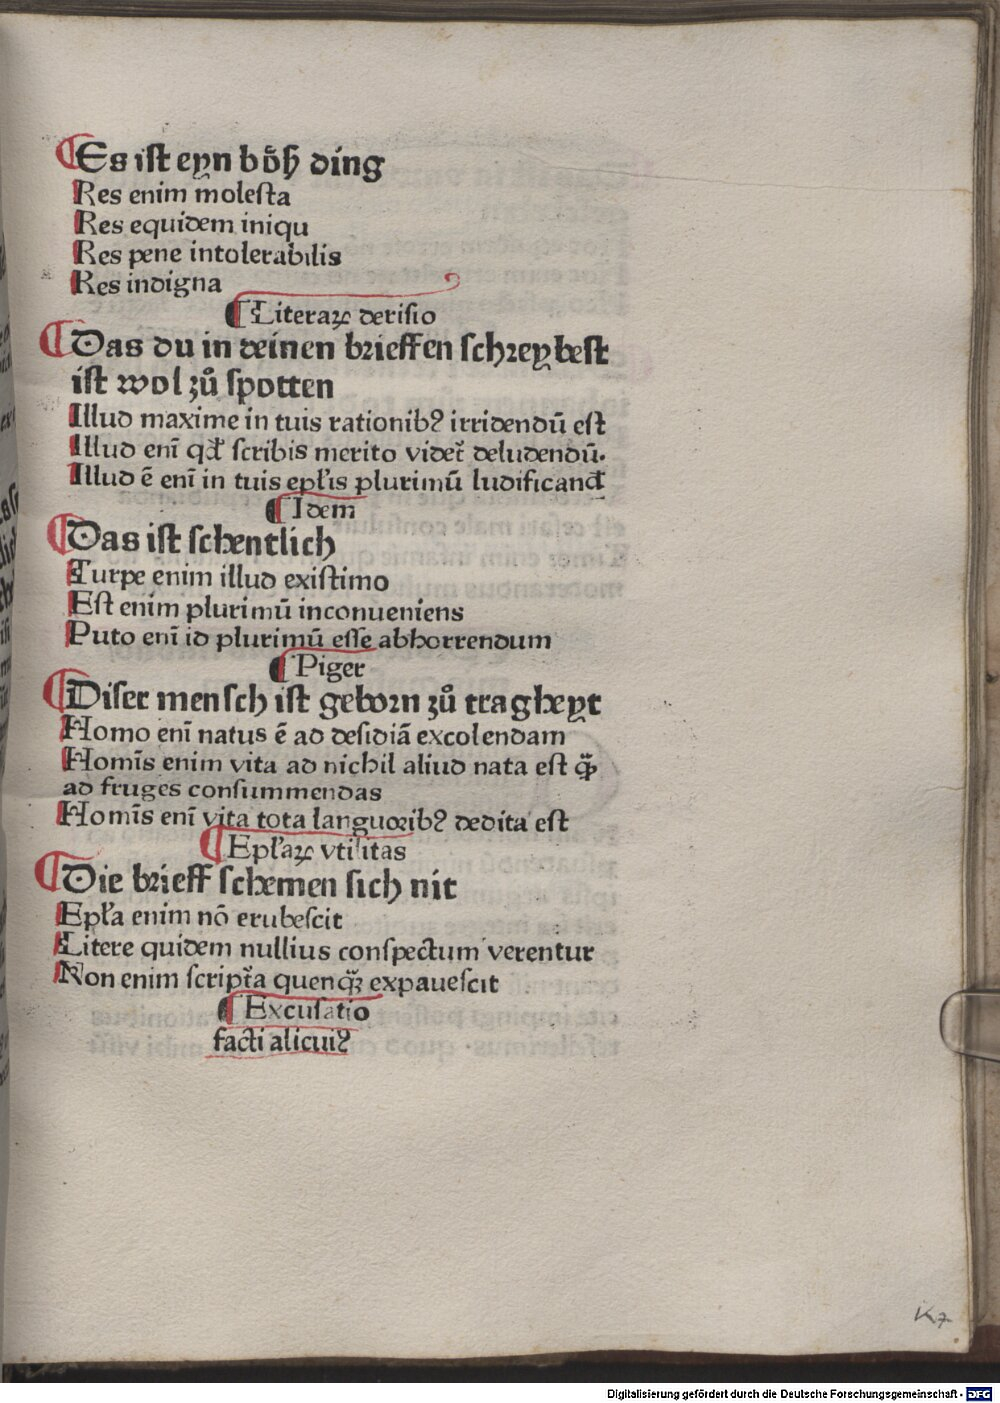 ¶Es ist eyn bößh ding
Res enim molesta
Res equidem iniqu
Res pene intolerabilis
Res indigna
¶Literaꝝ derisio
¶Das du in deinen brieffen schreybest
ist wol zů spotten
Illud maxime in tuis rationibꝰ irridendū est
Illud enī qđ scribis merito videt̃ deludendū.
Illud ē enī in tuis ep̄lis plurimū ludificanđ
¶Idem
¶Das ist schentlich
Turpe enim illud existimo
Est enim plurimū inconueniens
Puto enī id plurimū esse abhorrendum
¶Piger
¶Diser mensch ist geborn zů tragheyt
Homo enī natus ē ad desidiā excolendam
Homīs enim vita ad nichil aliud nata est q̄ꝫ
ad fruges consummendas
Homīs enī vita tota languoribꝰ dedita est
¶Ep̄laꝝ vtilitas
¶Die brieff schemen sich nit
Ep̄la enim nō erubescit
Litere quidem nullius conspectum verentur
Non enim script̃a quenq̄ꝫ expauescit
¶Excusatio
facti alicuiꝰ
K7
Digitalisierung gefördert durch die Deutsche Forschungsgemeinschaft - DFG